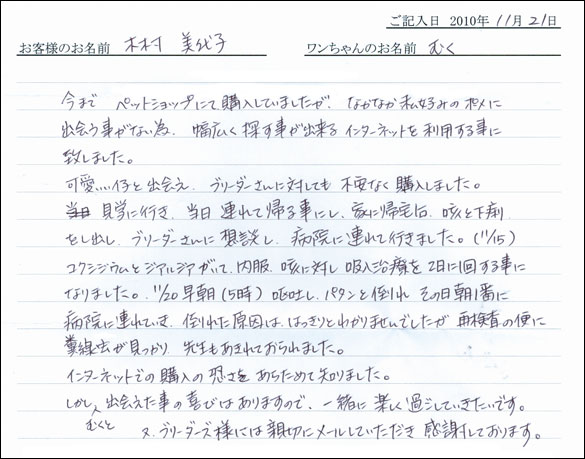 ご記入日 2010年 11月 21日
お客様のお名前 木村 美代子 ワンちゃんのお名前 むく
今まで ペットショップにて購入していましたが、なかなか私好みのポメに
出会う事がない為、幅広く探す事が出来るインターネットを利用する事に
致しました。
可愛いい仔と出会え、ブリーダーさんに対しても不安なく購入しました。
見学に行き、当日連れて帰る事にし、家に帰宅后、咳と下痢
をし出し、ブリーダーさんに相談し、病院に連れて行きました。(11/15)
コクシジウムとジアルジアがいて、内服、咳に対し吸入治療を2日に1回する事に
なりました。11/20早朝(5時)嘔吐し、パタンと倒れ その日朝1番に
病院に連れていき、倒れた原因は、はっきりとわかりませんでしたが 再検査の便に
糞線虫が見つかり、先生もあきれておられました。
インターネットでの購入の恐さをあらためて知りました。
しかし、むくと出会えた事の喜びはありますので、一緒に楽しく過ごしていきたいです。
又、ブリーダーズ様には親切にメールしていただき 感謝しております。